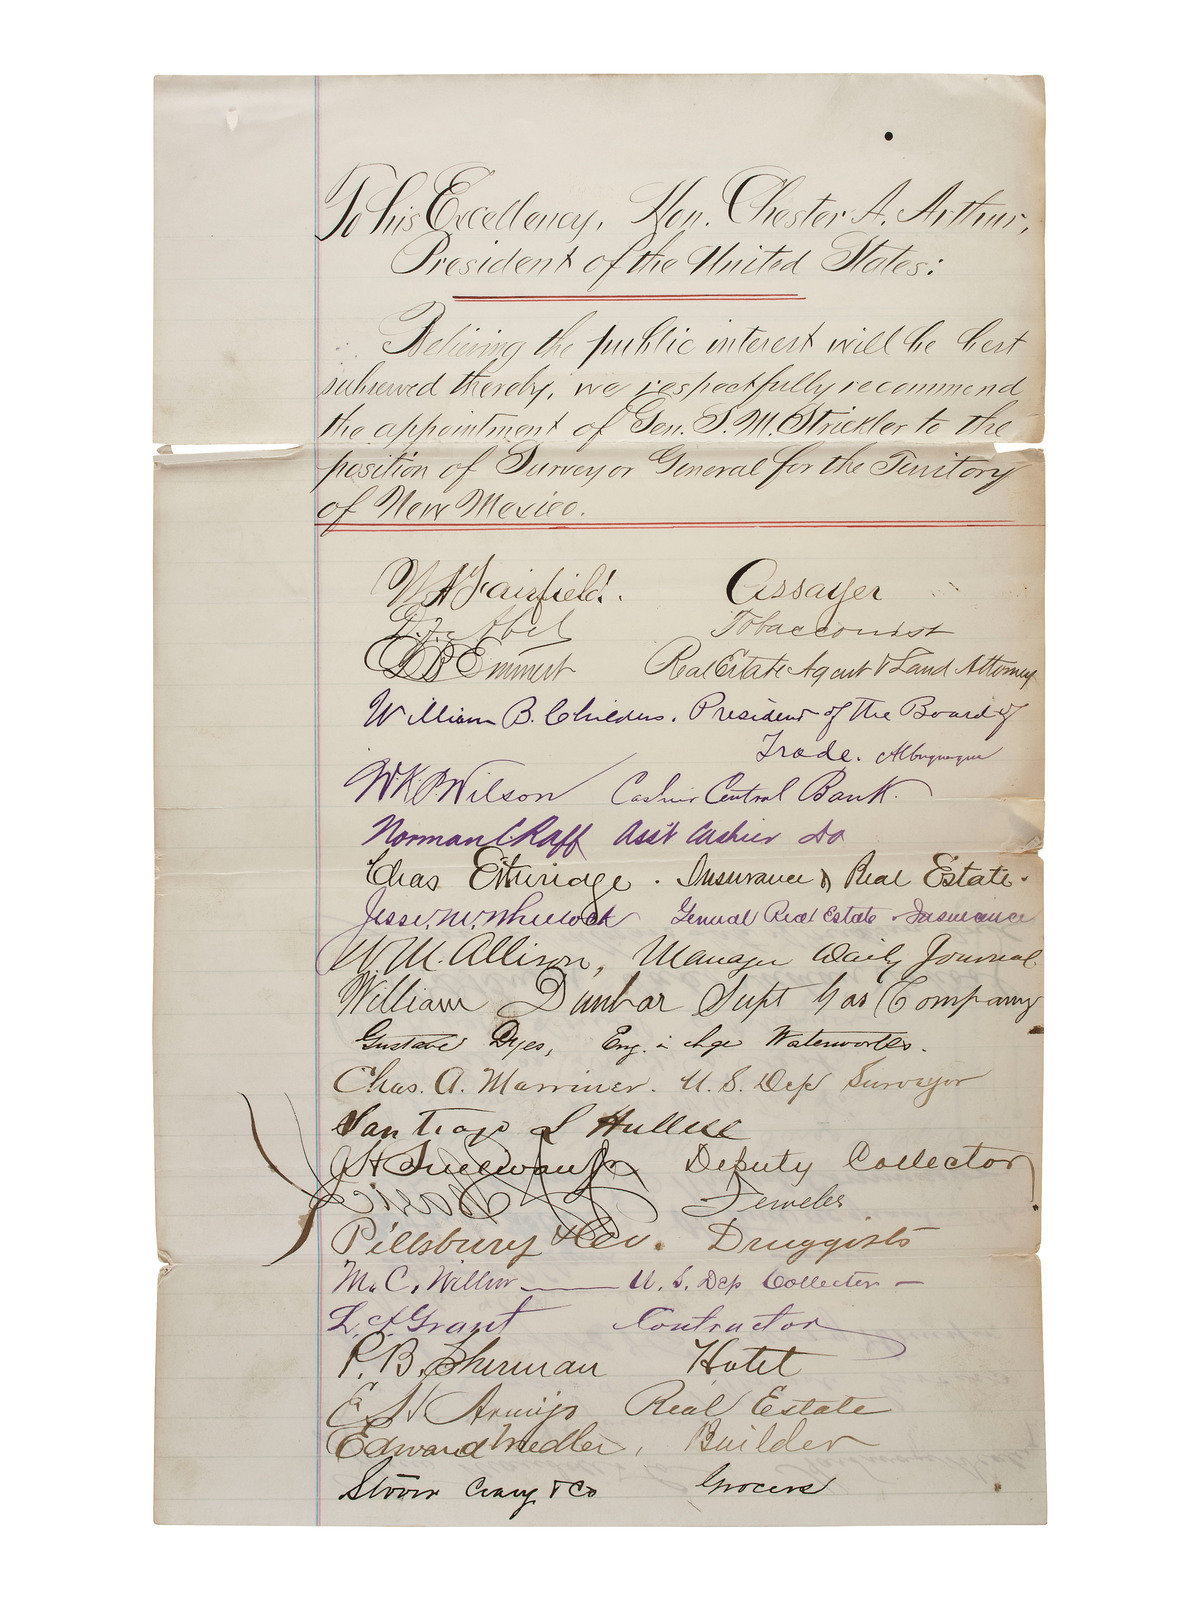 To his Excellency, Hon. Chester A. Arthur,
President of the United States:
Believing the public interest will be best
subserved thereby, we respectfully recommend
the appointment of Gen. S. M. Strickler to the
position of Surveyor General for the Territory
of New Mexico.
W A Fairfield. Assayer
Abel Tobacconist
Emmert Real Estate Agent & Land Attorney
William B. Childers. President of the Board of
Trade. Albuquerque
W. K. P. Wilson Cashier Central Bank.
Norman C. Raff Ass't Cashier Do
Chas Etheridge. Insurance & Real Estate.
Jesse. M. Wheelock General Real Estate & Insurance
W. M. Allison, Manager Daily Journal
William Dunbar Supt Gas Company
Gustave Dyes, Eng. Waterworks.
Chas. A. Marriner. U. S. Dep Surveyor
Santiago
J. H. Deputy Collector
Jeweler
Pillsbury & Co. Druggists
M. C. U. S. Dep Collector
Grant Contractor
P. B. Sherman Hotel
Armijo Real Estate
Edward Medler, Builder
Stover Crary & Co Grocers